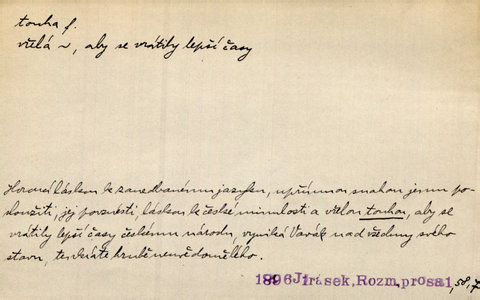 touha f.
vřelá ~, aby se vrátily lepší časy
Horoucí láskou k zanedbanému jazyku, upřímnou snahou jemu po-
sloužiti, jej povznésti, láskou k české minulosti a vřelou touhou, aby se
vrátily lepší časy českému národu, vyniká Vavák nad všechny svého
stavu, tenkráte hrubě neuvědomělého.
1896 Jirásek, Rozm. prosa 1, 58, 7